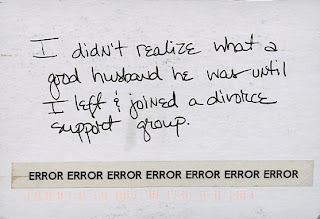 I didn't realize what a
good husband he was until
I left & joined a divorce
support group.
ERROR ERROR ERROR ERROR ERROR ERROR ERROR